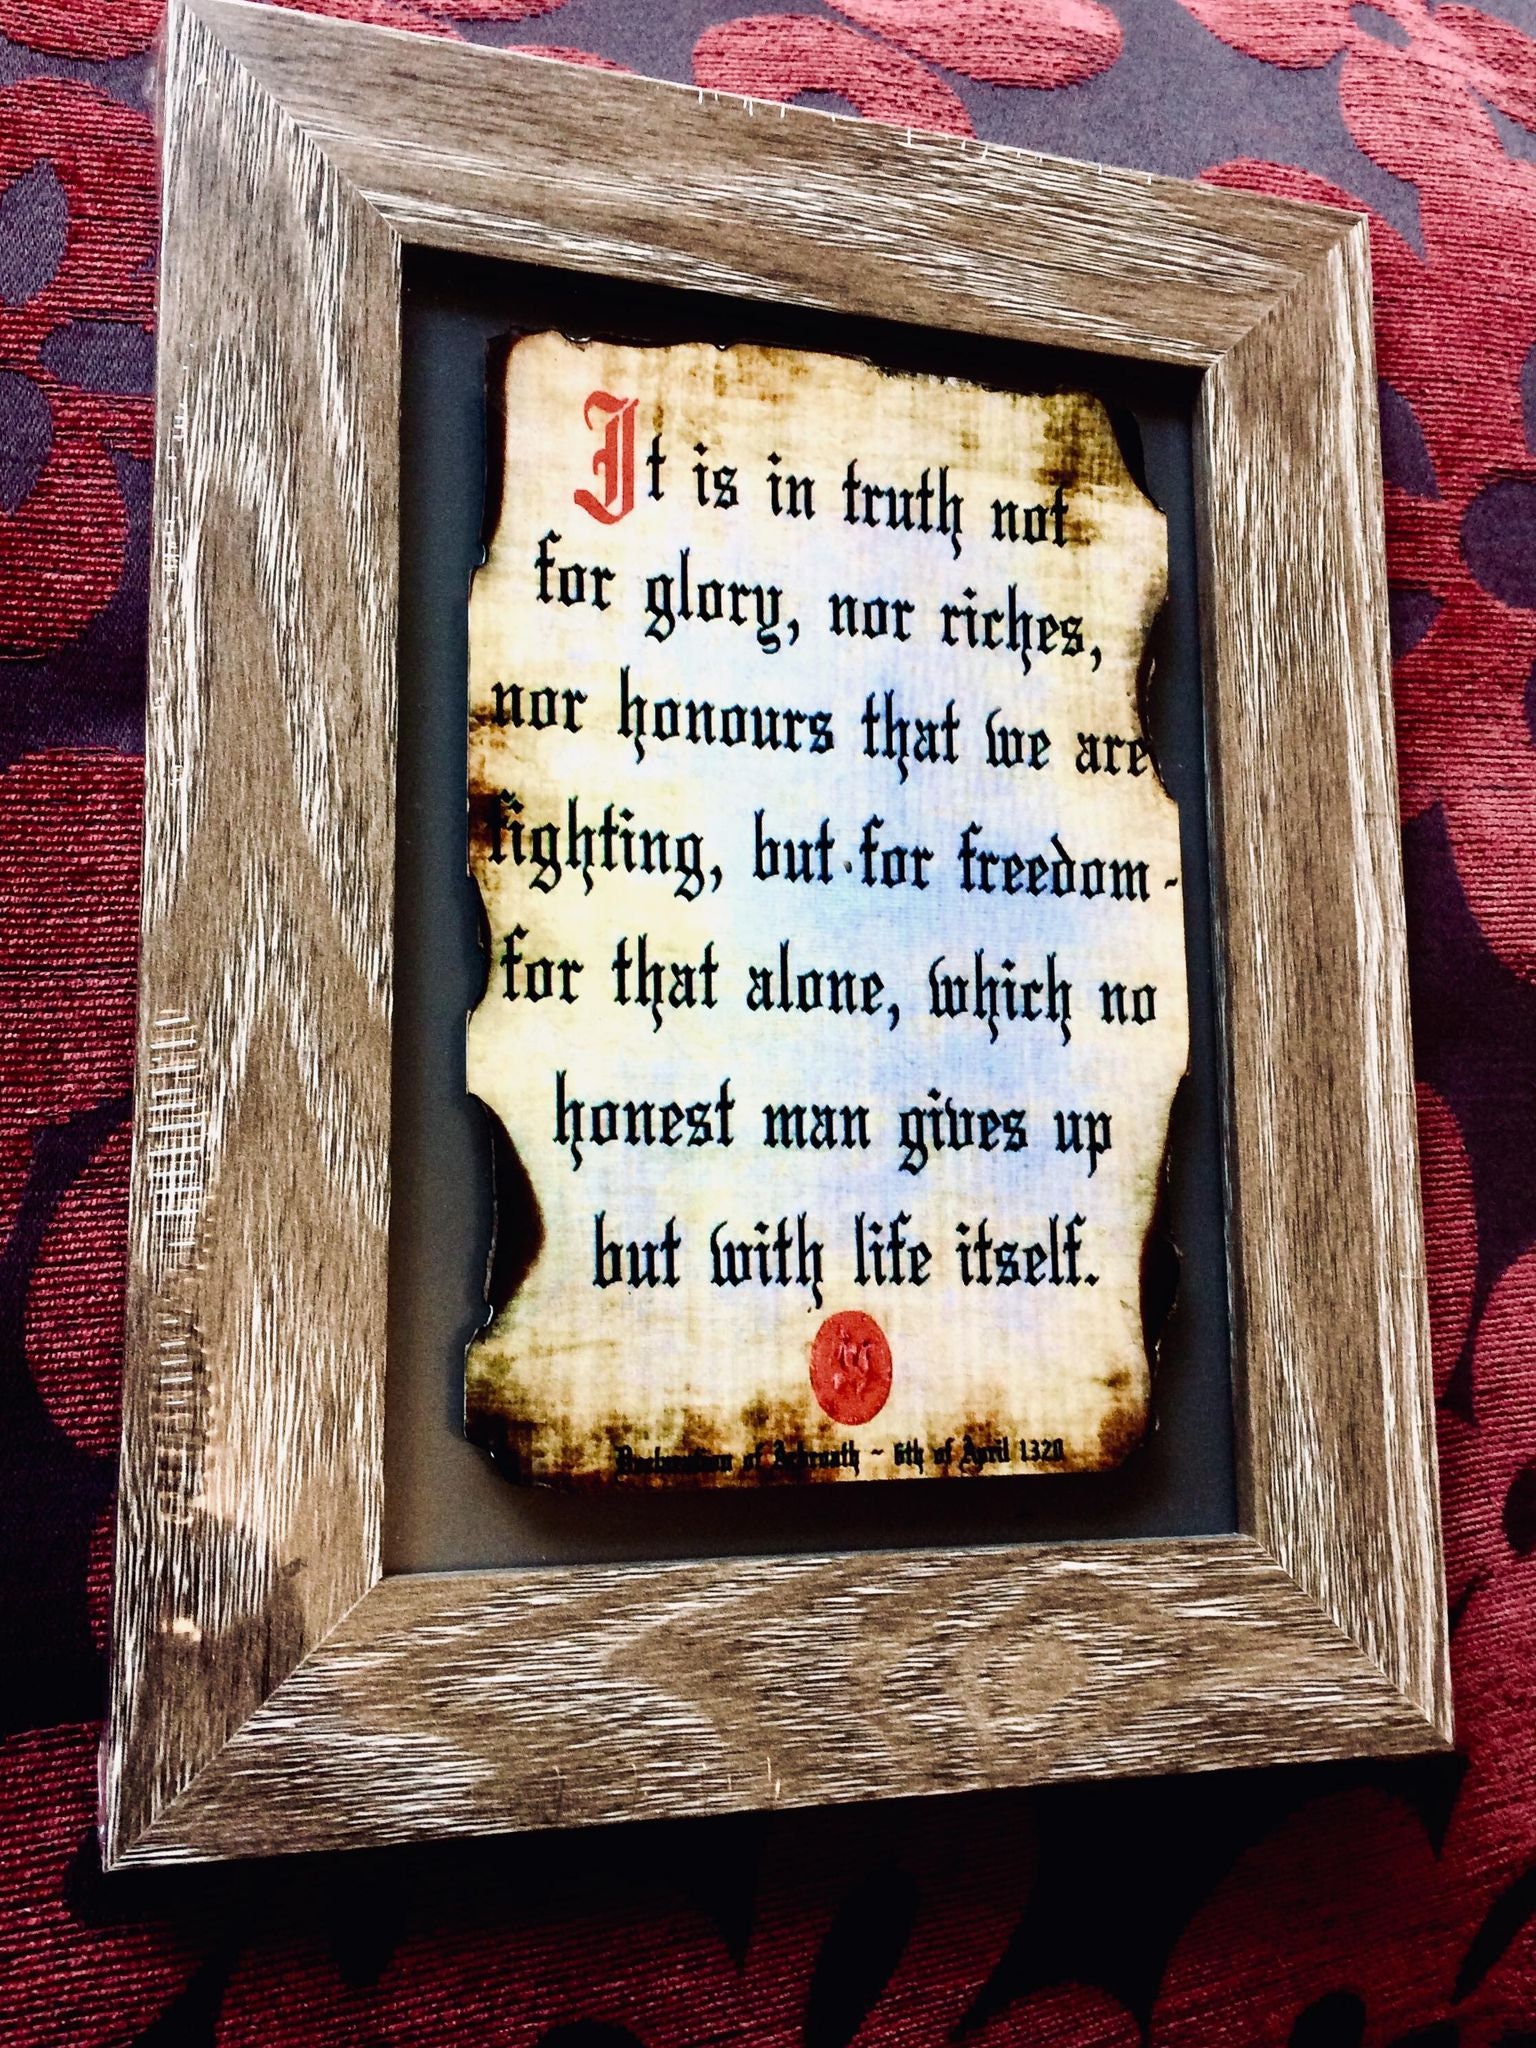 It is in truth not
for glory, nor riches,
nor honours that we are
fighting, but for freedom -
for that alone, which no
honest man gives up
but with life itself.
Declaration of Arbroath ~ 6th of April 1320